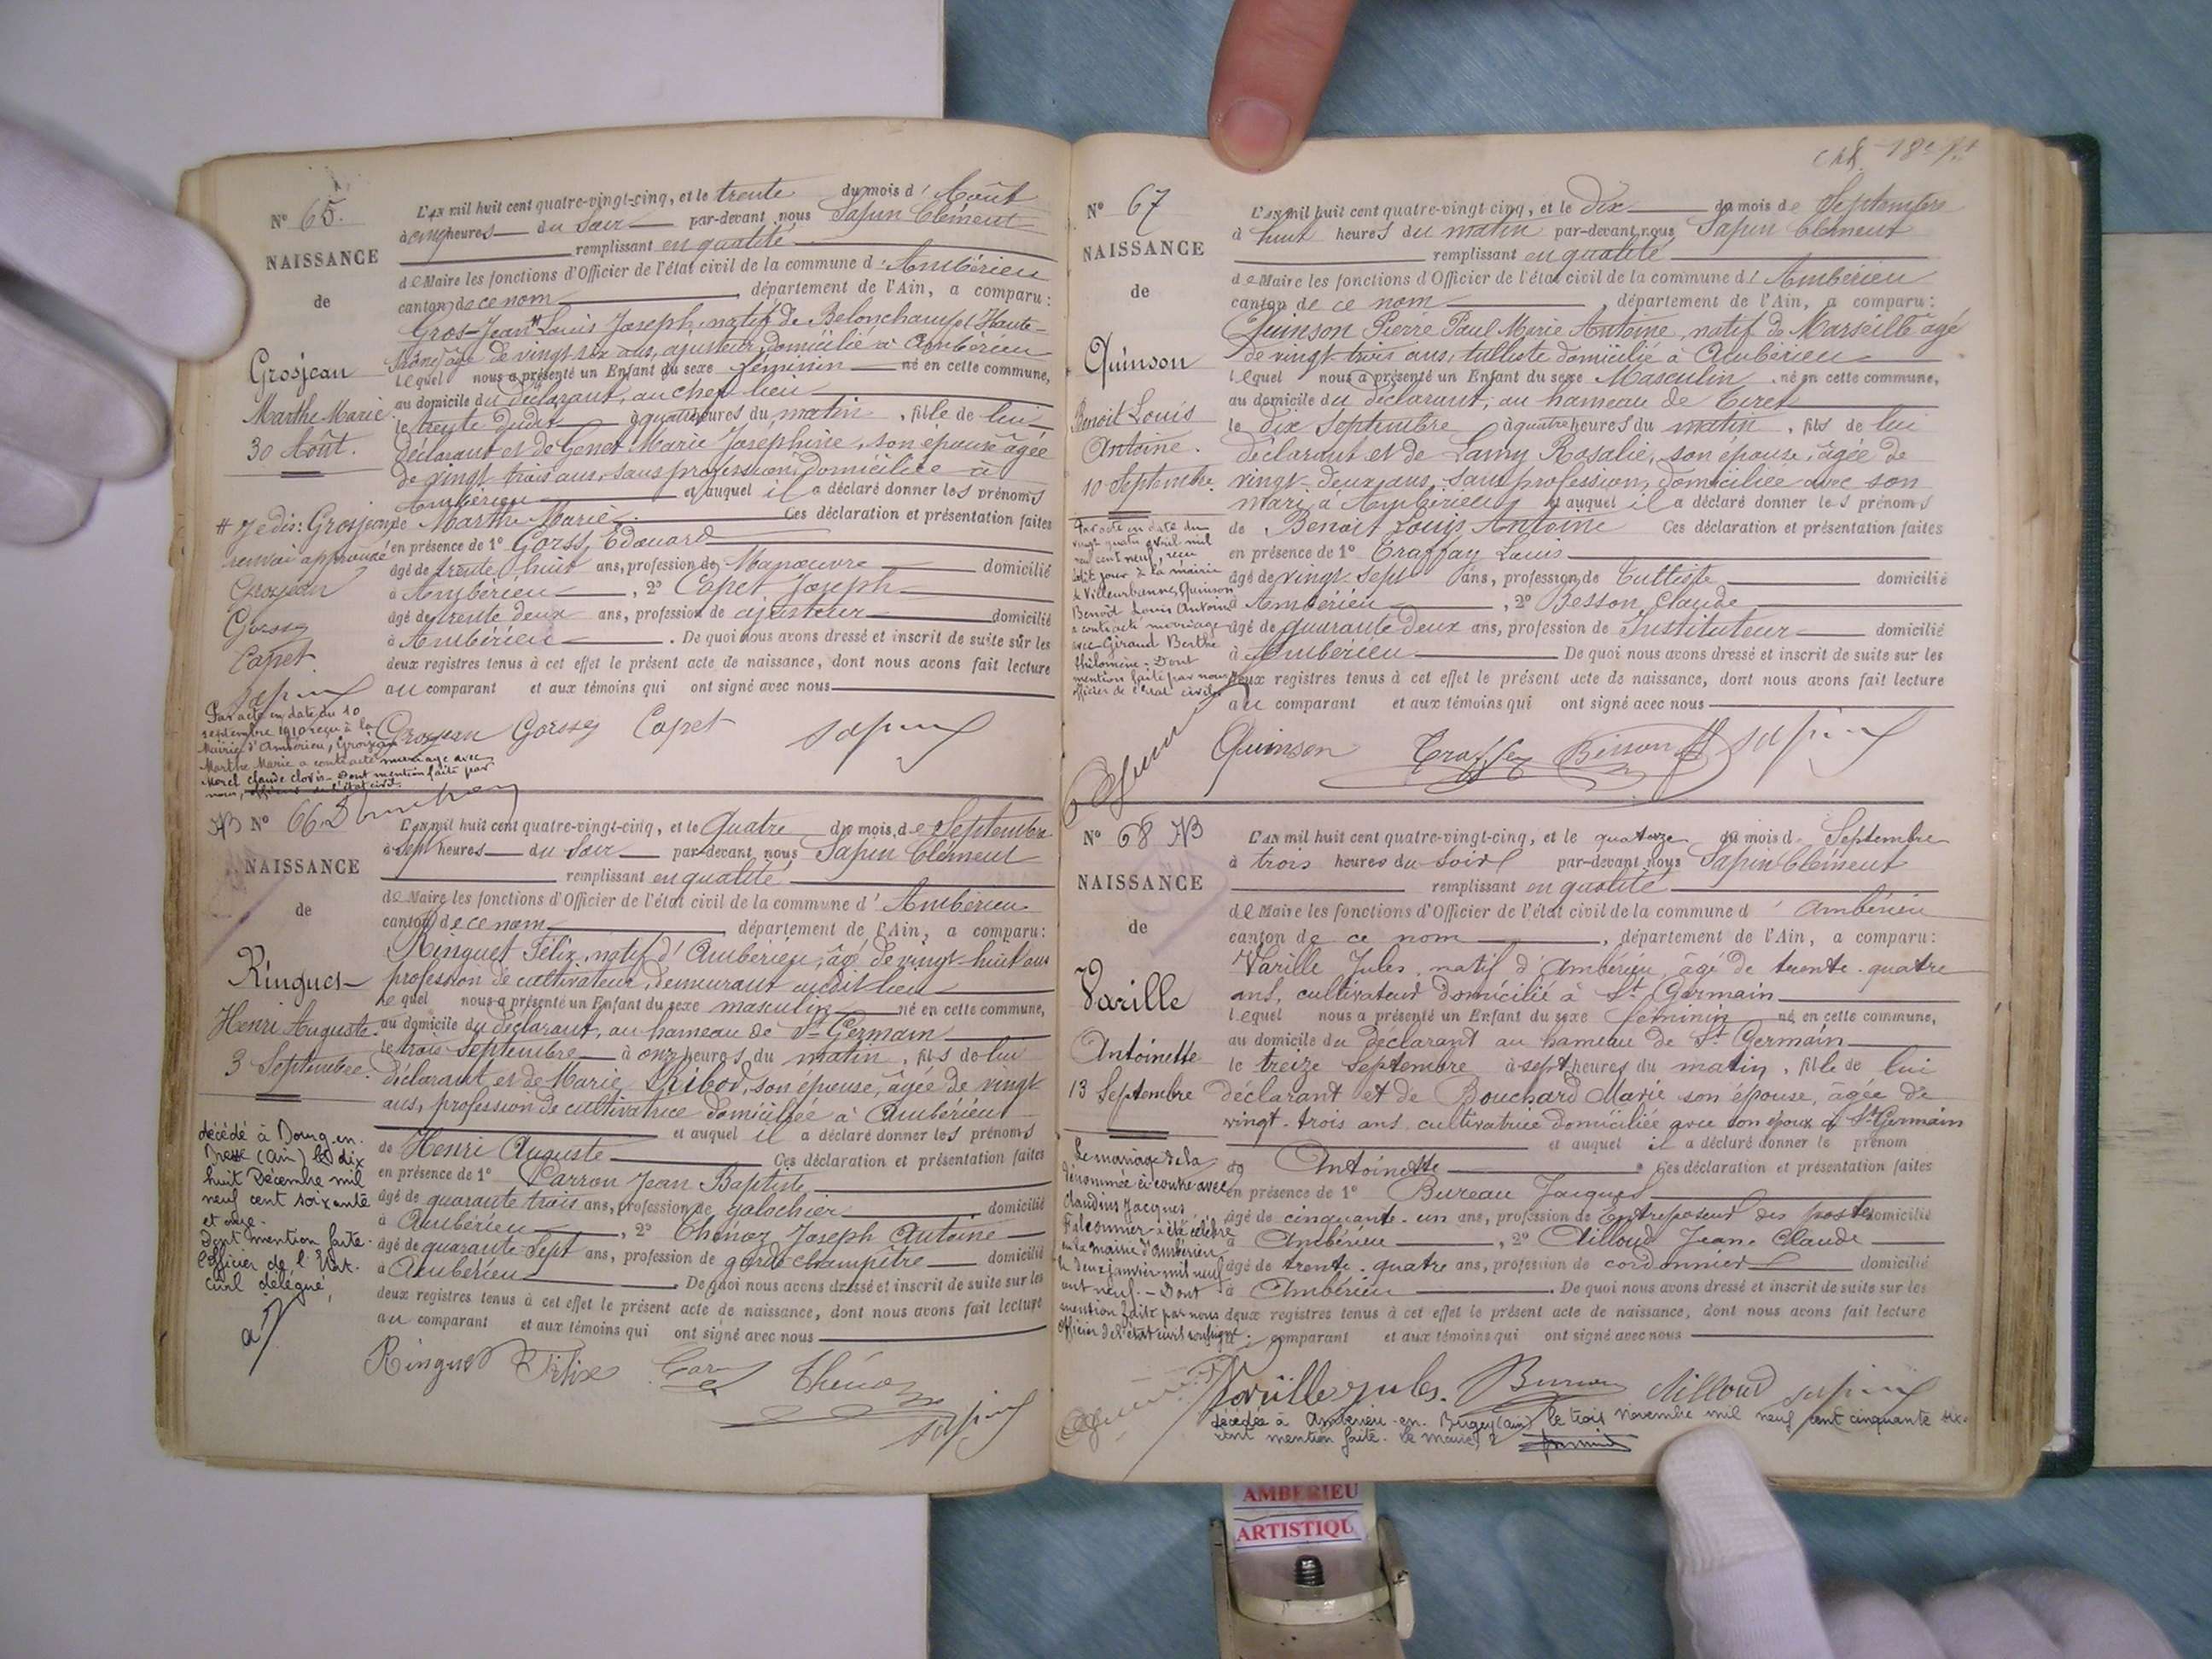 N° 65.
NAISSANCE
de
Grosjean
Marthe Marie
30 Août.
L'an mil huit cent quatre-vingt-cinq, et le trente du mois d'Août
à cinq heures du soir par-devant nous Sapin Clément
remplissant en qualité
de Maire les fonctions d'Officier de l'état civil de la commune d'Ambérieu
canton de ce nom, département de l'Ain, a comparu:
Gros-Jean # Louis Joseph, natif de Belonchamp (Haute-
Saône) âgé de vingt six ans, ajusteur, domicilié à Ambérieu
lequel nous a présenté un Enfant du sexe féminin né en cette commune,
au domicile du déclarant, au chef lieu
le trente dudit à quatre heures du matin, fille de lui
déclarant et de Genet Marie Joséphine, son épouse âgée
de vingt trois ans, sans profession, domiciliée à
Ambérieu et auquel il a déclaré donner les prénoms
de Marthe Marie. Ces déclaration et présentation faites
en présence de 1° Gorssy Edouard
âgé de trente huit ans, profession de Manœuvre domicilié
à Ambérieu, 2° Capet Joseph
âgé de trente deux ans, profession de ajusteur domicilié
à Ambérieu. De quoi nous avons dressé et inscrit de suite sur les
deux registres tenus à cet effet le présent acte de naissance, dont nous avons fait lecture
au comparant et aux témoins qui ont signé avec nous
Grosjean Gorssy Capet Sapin
# Je dis: Grosjean
renvoi approuvé
Grosjean
Gorssy
Capet
Sapin
Par acte en date du 10
septembre 1910 reçu à la
Mairie d'Ambérieu, Grosjean
Marthe Marie a contracté mariage avec
Morel Claude Clovis - Dont mention faite par
nous, officier de l'état civil.
NB N° 66
NAISSANCE
de
Ringuet
Henri Auguste.
3 Septembre.
L'an mil huit cent quatre-vingt-cinq, et le Quatre du mois de Septembre
à sept heures du soir par-devant nous Sapin Clément
remplissant en qualité
de Maire les fonctions d'Officier de l'état civil de la commune d'Ambérieu
canton de ce nom, département de l'Ain, a comparu:
Ringuet Félix, natif d'Ambérieu, âgé de vingt-huit ans
profession de cultivateur, demeurant audit lieu
lequel nous a présenté un Enfant du sexe masculin né en cette commune,
au domicile du déclarant, au hameau de St Germain
le trois Septembre à onze heures du matin, fils de lui
déclarant et de Marie Ribod, son épouse, âgée de vingt
ans, profession de cultivatrice domiciliée à Ambérieu
et auquel il a déclaré donner les prénoms
de Henri Auguste Ces déclaration et présentation faites
en présence de 1° Carron Jean Baptiste
âgé de quarante trois ans, profession de galochier domicilié
à Ambérieu, 2° Thénoz Joseph Antoine
âgé de quarante sept ans, profession de garde champêtre domicilié
à Ambérieu. De quoi nous avons dressé et inscrit de suite sur les
deux registres tenus à cet effet le présent acte de naissance, dont nous avons fait lecture
au comparant et aux témoins qui ont signé avec nous
Ringuet Félix Thénoz
Sapin
décédé à Bourg-en-
Bresse (Ain) le dix
huit Décembre mil
neuf cent soixante
et onze.
Dont mention faite.
L'Officier de l'Etat-
Civil délégué,
N° 67
NAISSANCE
de
Quinson
Benoit Louis
Antoine.
10 Septembre.
L'an mil huit cent quatre-vingt cinq, et le dix du mois de Septembre
à huit heures du matin par-devant nous Sapin Clément
remplissant en qualité
de Maire les fonctions d'Officier de l'état civil de la commune d'Ambérieu
canton de ce nom, département de l'Ain, a comparu:
Quinson Pierre Paul Marie Antoine, natif de Marseille âgé
de vingt-trois ans, tulliste domicilié à Ambérieu
lequel nous a présenté un Enfant du sexe Masculin, né en cette commune,
au domicile du déclarant, au hameau de Tiret
le dix Septembre à quatre heures du matin, fils de lui
déclarant et de Lamy Rosalie, son épouse, âgée de
vingt-deux ans, sans profession, domiciliée avec son
mari à Ambérieu, et auquel il a déclaré donner les prénoms
de Benoit Louis Antoine Ces déclaration et présentation faites
en présence de 1° Traffay Louis
âgé de vingt-sept ans, profession de Tulliste domicilié
à Ambérieu, 2° Besson Claude
âgé de quarante deux ans, profession de Instituteur domicilié
à Ambérieu De quoi nous avons dressé et inscrit de suite sur les
deux registres tenus à cet effet le présent acte de naissance, dont nous avons fait lecture
au comparant et aux témoins qui ont signé avec nous
Quinson Traffay Besson Sapin
Par acte en date du
vingt quatre avril mil
neuf cent neuf, reçu
ledit jour à la mairie
de Villeurbanne, Quinson
Benoit Louis Antoine
a contracté mariage
avec Giraud Berthe
Philomène - Dont
mention faite par nous
officier de l'état civil
N° 68 NB
NAISSANCE
de
Varille
Antoinette
13 Septembre
L'an mil huit cent quatre-vingt-cinq, et le quatorze du mois de Septembre
à trois heures du soir par-devant nous Sapin Clément
remplissant en qualité
de Maire les fonctions d'Officier de l'état civil de la commune d'Ambérieu
canton de ce nom, département de l'Ain, a comparu:
Varille Jules, natif d'Ambérieu, âgé de trente-quatre
ans, cultivateur domicilié à St Germain
lequel nous a présenté un Enfant du sexe féminin né en cette commune,
au domicile du déclarant au hameau de St Germain
le treize Septembre à sept heures du matin, fille de lui
déclarant et de Bouchard Marie son épouse, âgée de
vingt-trois ans, cultivatrice domiciliée avec son époux à St Germain
et auquel il a déclaré donner le prénom
de Antoinette. Ces déclaration et présentation faites
en présence de 1° Bureau Jacques
âgé de cinquante-un ans, profession de Entreposeur des postes domicilié
à Ambérieu, 2° Ailloud Jean-Claude
âgé de trente-quatre ans, profession de cordonnier domicilié
à Ambérieu. De quoi nous avons dressé et inscrit de suite sur les
deux registres tenus à cet effet le présent acte de naissance, dont nous avons fait lecture
comparant et aux témoins qui ont signé avec nous
Varille Jules. Bureau Ailloud Sapin
Le mariage de la
dénommée ci-contre avec
Claudius Jacques
Falconnier a été célébré
en la mairie d'Ambérieu
le deux janvier mil neuf
cent neuf. - Dont
mention faite par nous
officier de l'état civil soussigné.
décédée à Ambérieu-en-Bugey (Ain) le trois novembre mil neuf cent cinquante six.
Dont mention faite. Le Maire,
AMBERIEU
ARTISTIQU